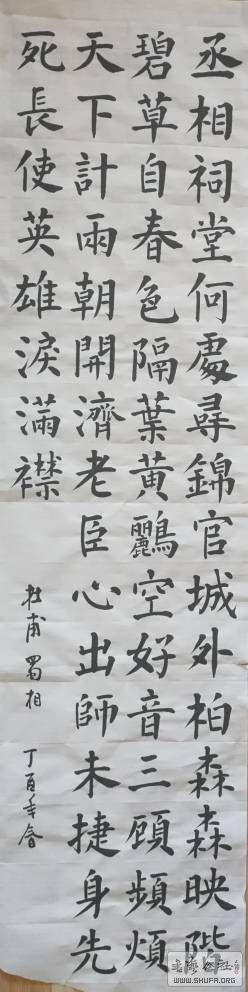 丞相祠堂何處尋錦官城外柏森森映階
碧草自春色隔葉黃鸝空好音三顧頻煩
天下計雨朝開濟老臣心出師未捷身先
死長使英雄淚滿襟
杜甫 蜀相 丁酉年春
WWW.SHUFA.ORG